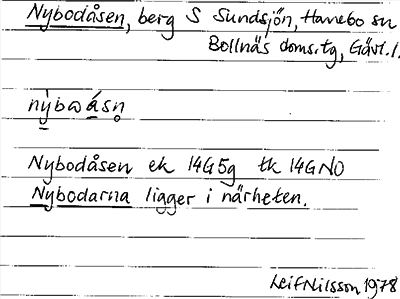 Nybodåsen, berg S Sundsjön, Hanebo sn
Bollnäs doms.tg, Gävl.l.
nỳbωá̱sn̥
Nybodåsen ek 14G5g tk 14GNO
Nybodarna ligger i närheten.
Leif Nilsson 1978